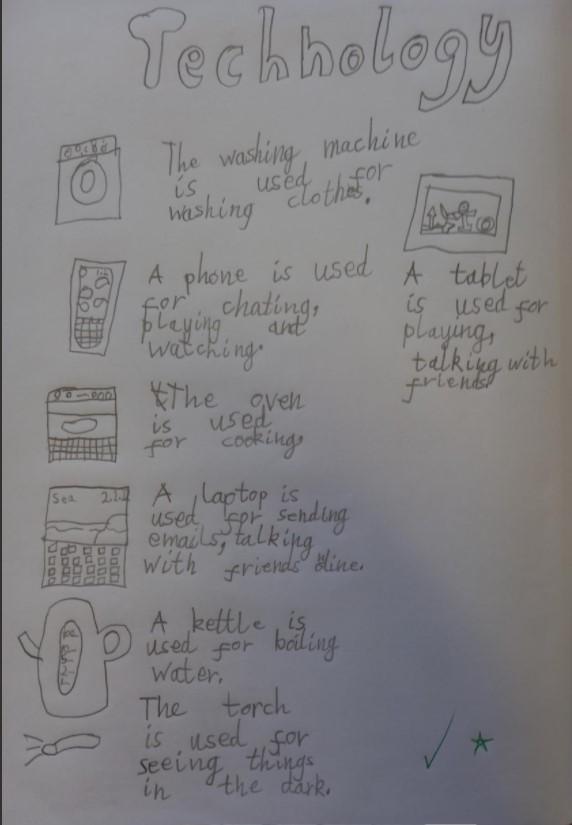 Technology
The washing machine
is used for
washing clothes.
A phone is used
for chating,
playing and
watching.
The oven
is used
for cooking
Sea 2.1.2
A laptop is
used for sending
emails, talking
with friends
A kettle is
used for boiling
water.
The torch
is used for
seeing things
in the dark.
A tablet
is used for
playing,
talking with
friends